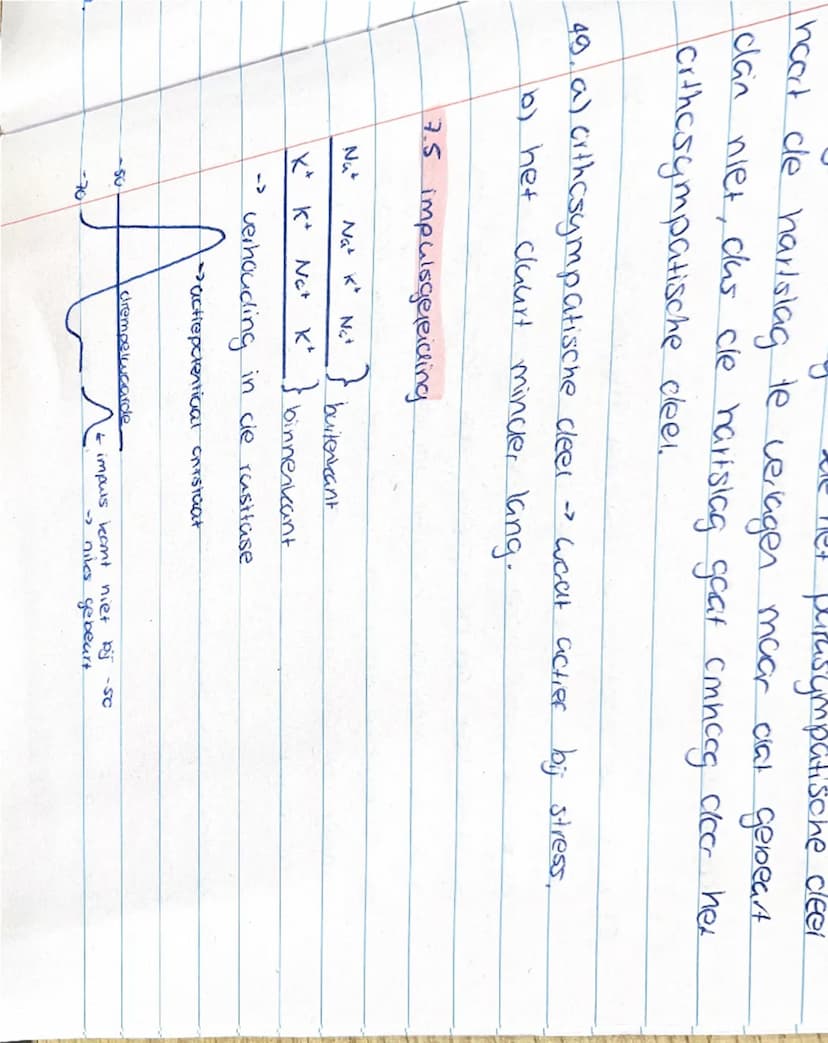 parasympatische deel
hoort de hartslag te verlagen maar dat gebeurt
dan niet, dus de hartslag gaat omhoog door het
orthosympatische deel.
49. a) orthosympatische deel -> wordt actief bij stress,
b) het duurt minder lang.
7.5 impulsgeleiding
Na+ Na+ K+ Na+ } buitenkant
K+ K+ Na+ K+ } binnenkant
-> verhouding in de rustfase
-> actiepotentiaal ontstaat
-50 drempelwaarde
impuls komt niet bij -50
-70 -> niks gebeurt